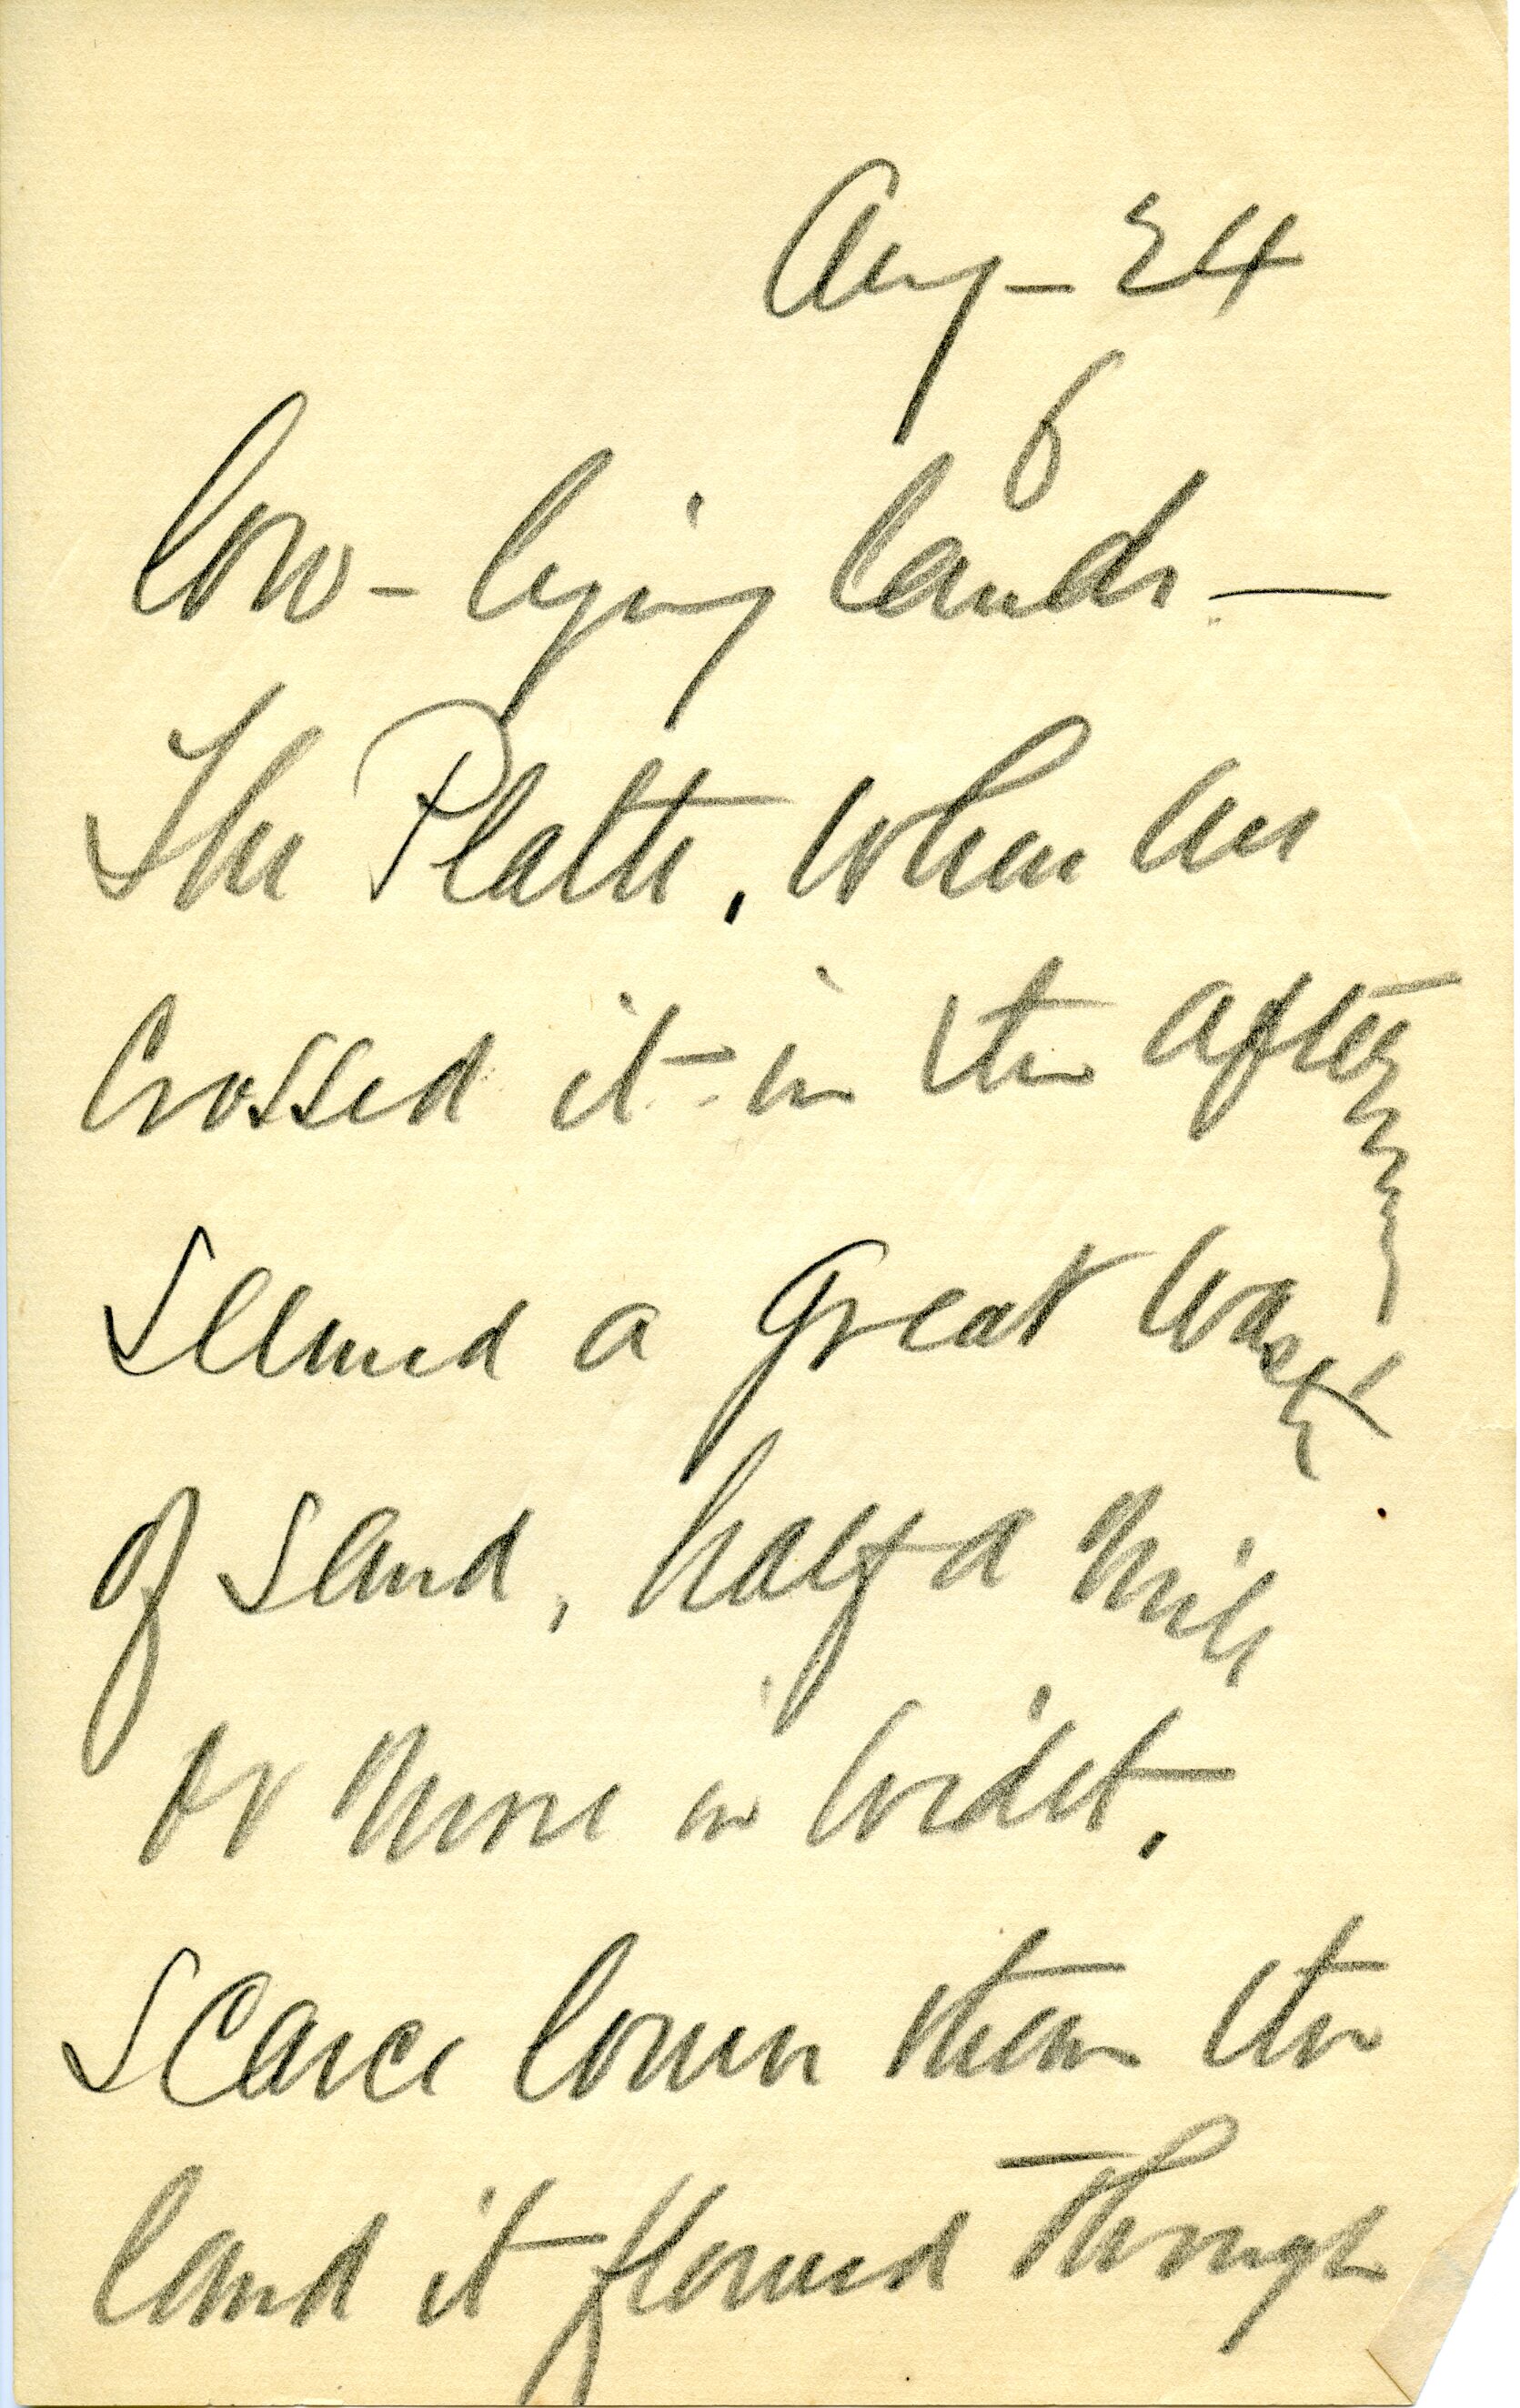 Aug – 24
6
low-lying lands —
The Platte, when we
crossed it in the afternoon
seemed a great waste
of sand, half a mile
or more in widt,
scarce lower than the
land it flowed through